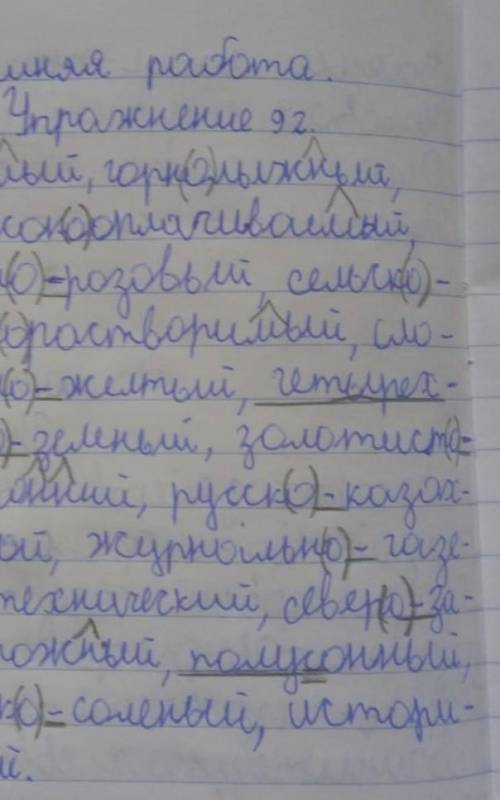 мняя работа.
Упражнение 92.
лый, горн(о)лыжный,
сок(о)оплачиваемый,
(о)-розовый, сельск(о)-
(о)растворимый, сло-
(о)-желтый, четырех-
)-зеленый, золотист(о)-
онний, русск(о)-казах-
ой, журнальн(о)-газе-
технический, север(о)-за-
рожный, полусонный,
к(о)-соленый, истори-
й.